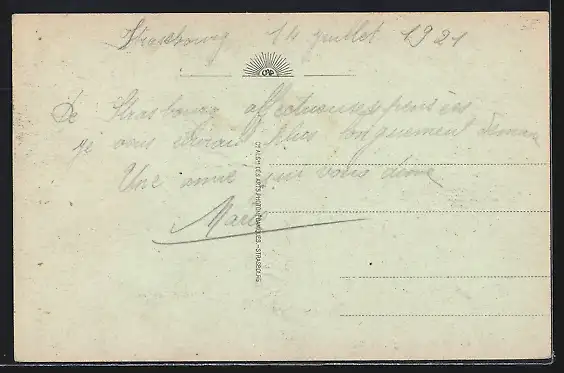 Strasbourg 14 juillet 1921
De Strasbourg affectueuses pensées
je vous écrirai plus longuement demain
Une amie qui vous aime
CIE ALSNE DES ARTS PHOTOMÉCANIQUES - STRASBOURG